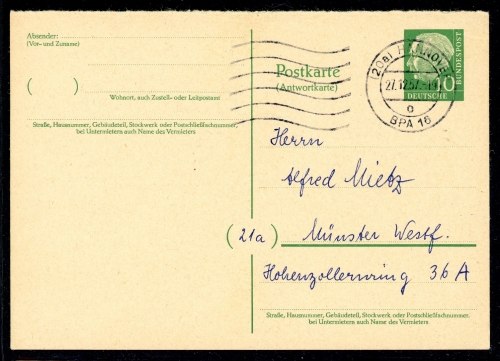 Absender:
(Vor- und Zuname)
Wohnort, auch Zustell- oder Leitpostamt
Straße, Hausnummer, Gebäudeteil, Stockwerk oder Postschließfachnummer,
bei Untermietern auch Name des Vermieters
Postkarte
(Antwortkarte)
(20a) HANNOVER
27.12.57.
a
BPA 16
10
DEUTSCHE
BUNDESPOST
Herrn
Alfred Mietz
(21a)
Münster Westf.
Hohenzollernring 36 A
Straße, Hausnummer, Gebäudeteil, Stockwerk oder Postschließfachnummer;
bei Untermietern auch Name des Vermieters